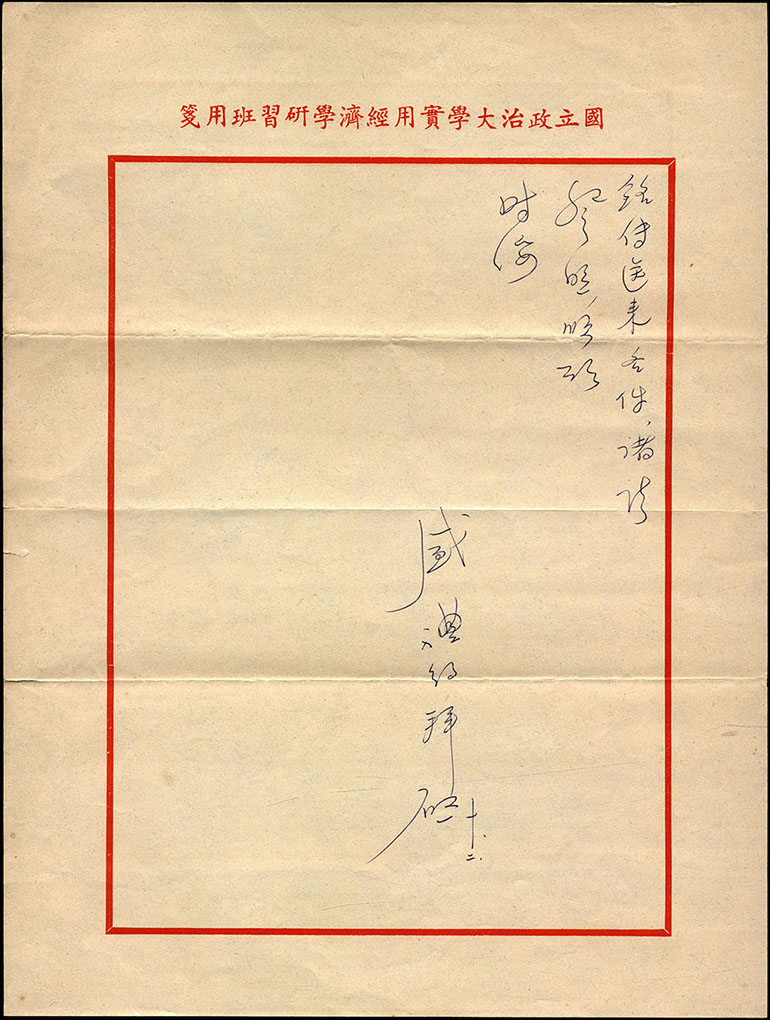 國立政治大學實用經濟學研習班用箋
銘傳送來各件,諸請
詧照,順頌
時綏
盛禮約拜啟 十.二.